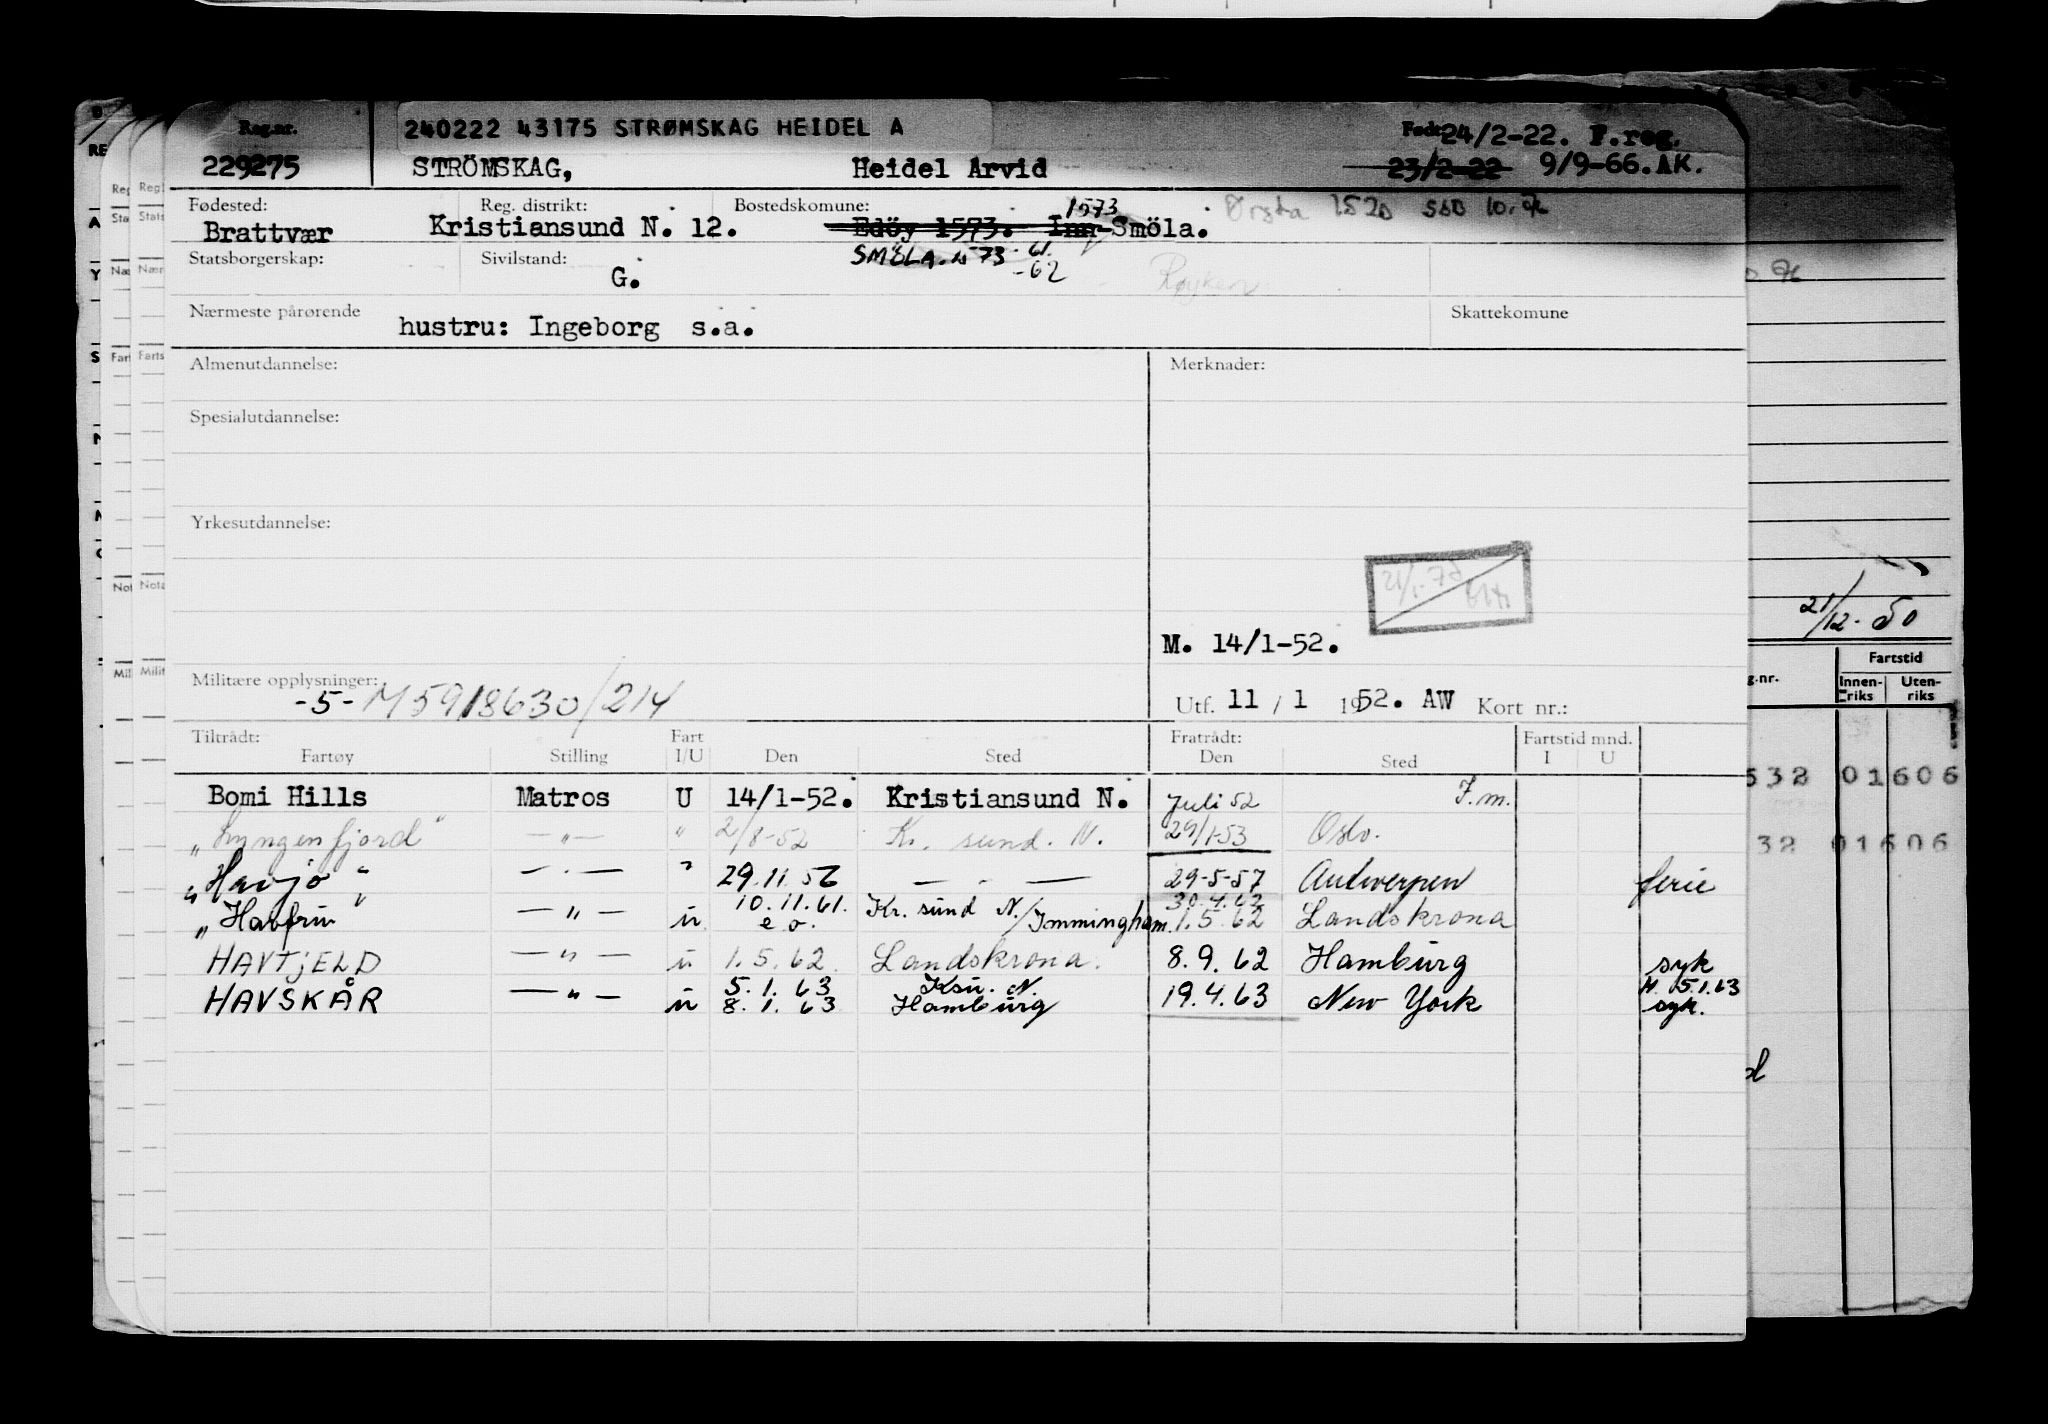 Reg.nr. 240222 43175 STRØMSKAG HEIDEL A Født: 24/2-22. F.reg.
229275 STRÖMSKAG, Heidel Arvid 23/2-22 9/9-66.AK.
Fødested: Reg. distrikt: Bostedskomune: 1573 Ørsta 1520
Brattvær Kristiansund N. 12. Edöy 1573. Inn-Smöla.
Statsborgerskap: Sivilstand: SMÖLA. 1573 -61.
G. -62 Røyken
Nærmeste pårørende hustru: Ingeborg s.a. Skattekomune
Almenutdannelse: Merknader:
Spesialutdannelse:
Yrkesutdannelse:
21/12-50
M. 14/1-52.
Militære opplysninger:
-5- M5918630/214 Utf. 11 / 1 1952. AW Kort nr.:
Tiltrådt: Fart Fratrådt: Fartstid mnd.
Fartøy Stilling I/U Den Sted Den Sted I U
Bomi Hills Matros U 14/1-52. Kristiansund N. Juli 52 F.m.
"Lyngenfjord" —"— " 2/8-52 Kr. sund. N. 29/1-53 Oslo.
"Havjo" — " — " 29.11.56 — " — 29-5-57 Antwerpen ferie
10.11.61. 30.4.62
"Havfrin" — " — u e.o. Kr. sund N./Immingham. 1.5.62 Landskrona
HAVTJELD — " — u 1.5.62. Landskrona. 8.9.62 Hamburg syk
5.1.63 Ksu. N. 5.1.63
HAVSKÅR — " — u 8.1.63 Hamburg 19.4.63 New York syk.
Fartstid
g.nr. Innen-riks Uten-riks
532 01606
32 01606